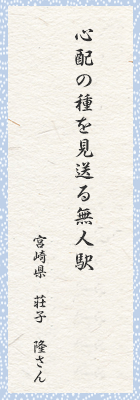 心配の種を見送る無人駅
宮崎県 荘子 隆さん